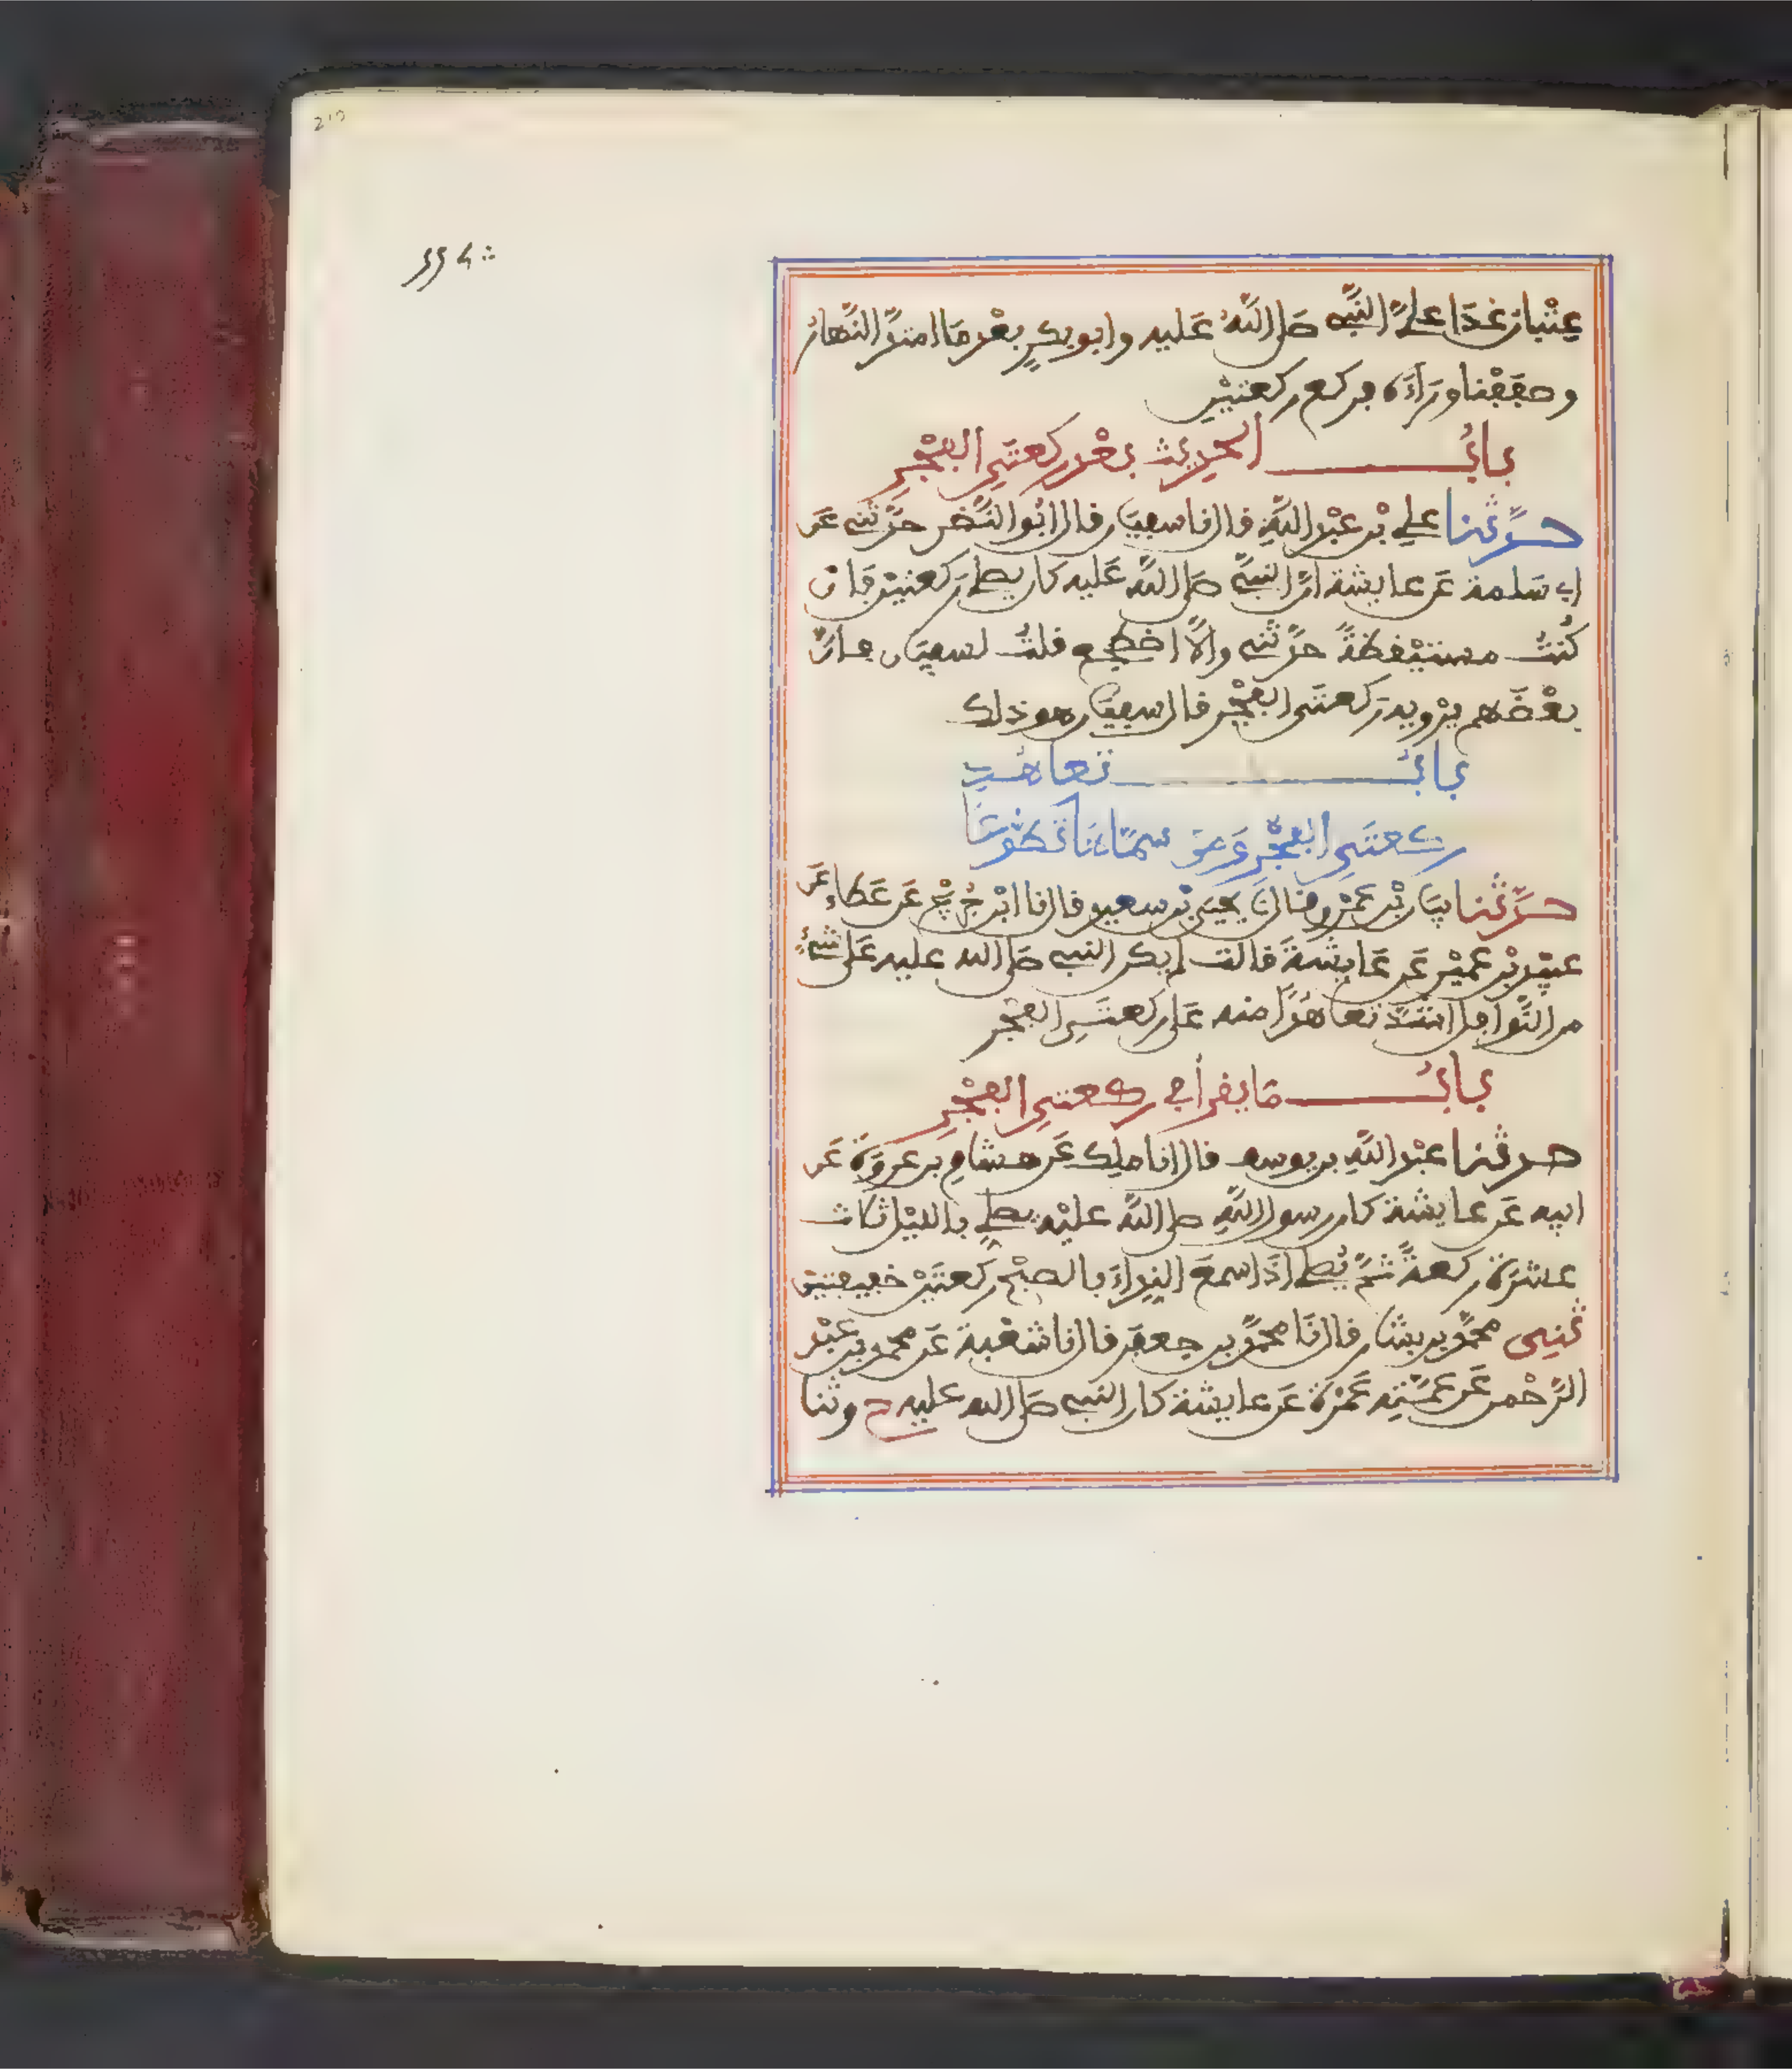 عِتْبان غَدَا عليَّ النَّبِي صَلى اللَّهُ عَليه وابو بكرٍ بعْد مَا امتدَّ النَّهار
وصَفَفْنا وَرَاءَه فركع ركعتيْن
بابُ الحديث بعْد ركعتَيِ الفجْرِ
حدَّثنا علي بْن عبْد اللَّهِ قال نا سفيَان قال ابُو النَّضر حدَّثني عَن
ابي سَلمة عَن عايشة انَّ النبيَّ صَلى اللَّه عَليه كان يصلي رَكعتيْن فَان
كُنتُ مستيْقظةً حدَّثني والَّا اضطجع قلتُ لسفيَان فانَّ
بعْضَهم يرْويه رَكعتَي الفجْر قال سفيَان هو ذلك
بابُ تعاهُدِ
ركعتَيِ الفجْرِ وَمَن سمَّاهَا تَطَوُّعًا
حدَّثنا بيَان بْن عَمْرو قال نَا يحيَى بْن سعيد قال نا ابْن جُرَيْج عَن عَطاء عَن
عبيْد بْن عميْر عَن عَايشَةَ قالت لم يكن النبي صَلى الله عليه عَلى شيْءٍ
من النَّوافل اشدَّ تعاهُدًا منه عَلى ركعتَيِ الفجْر
بابُ مَا يقرأ في ركعتيِ الفجْرِ
حدثنا عبْد اللَّهِ بن يوسف قال انا ملك عَن هشامِ بن عروَة عَن
ابيه عَن عايشة كان رسول اللَّهِ صلى اللَّه عليْه يصلي بالليْل ثلاث
عشرَة ركعةً ثمَّ يُصلي اذَا سمعَ النِداءَ بالصبْح رَكعتَيْن خفيفتيْن
ثنِي محمَّد بن بشار قال نَا محمَّد بن جعفَر قال نا شعْبة عَن محمد بن عبْد
الرَّحْمن عَن عمَّتِه عَمْرَة عَن عايشة كان النبي صَلى الله عليه ح وثنا